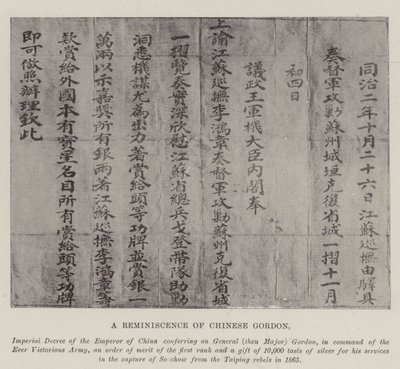 同治二年十月二十六日江蘇巡撫由驛具
奏督軍攻勦蘇州城垣克復省城一摺十一月
初四日
議政王軍機大臣內閣奉
上諭江蘇巡撫李鴻章奏督軍攻勦蘇州克復省城
一摺覽奏實深欣慰江蘇省總兵戈登帶隊助勦
洞悉機謀尤為出力著賞給頭等功牌並賞銀一
萬兩以示嘉獎所有銀兩著江蘇巡撫李鴻章籌
款賞給外國本有寶星名目所有賞給頭等功牌
即可倣照辦理欽此
A REMINISCENCE OF CHINESE GORDON,
Imperial Decree of the Emperor of China conferring on General (then Major) Gordon, in command of the
Ever Victorious Army, an order of merit of the first rank and a gift of 10,000 taels of silver for his services
in the capture of Soochow from the Taiping rebels in 1863.